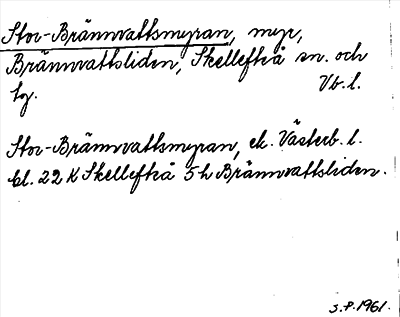 Stor-Brännvattsmyran, myr,
Brännvattsliden, Skellefteå sn. och
tg. Vb. l.
Stor-Brännvattsmyran, ek. Västerb. l.
bl. 22 K Skellefteå 5 h Brännvattsliden.
S.P. 1961.